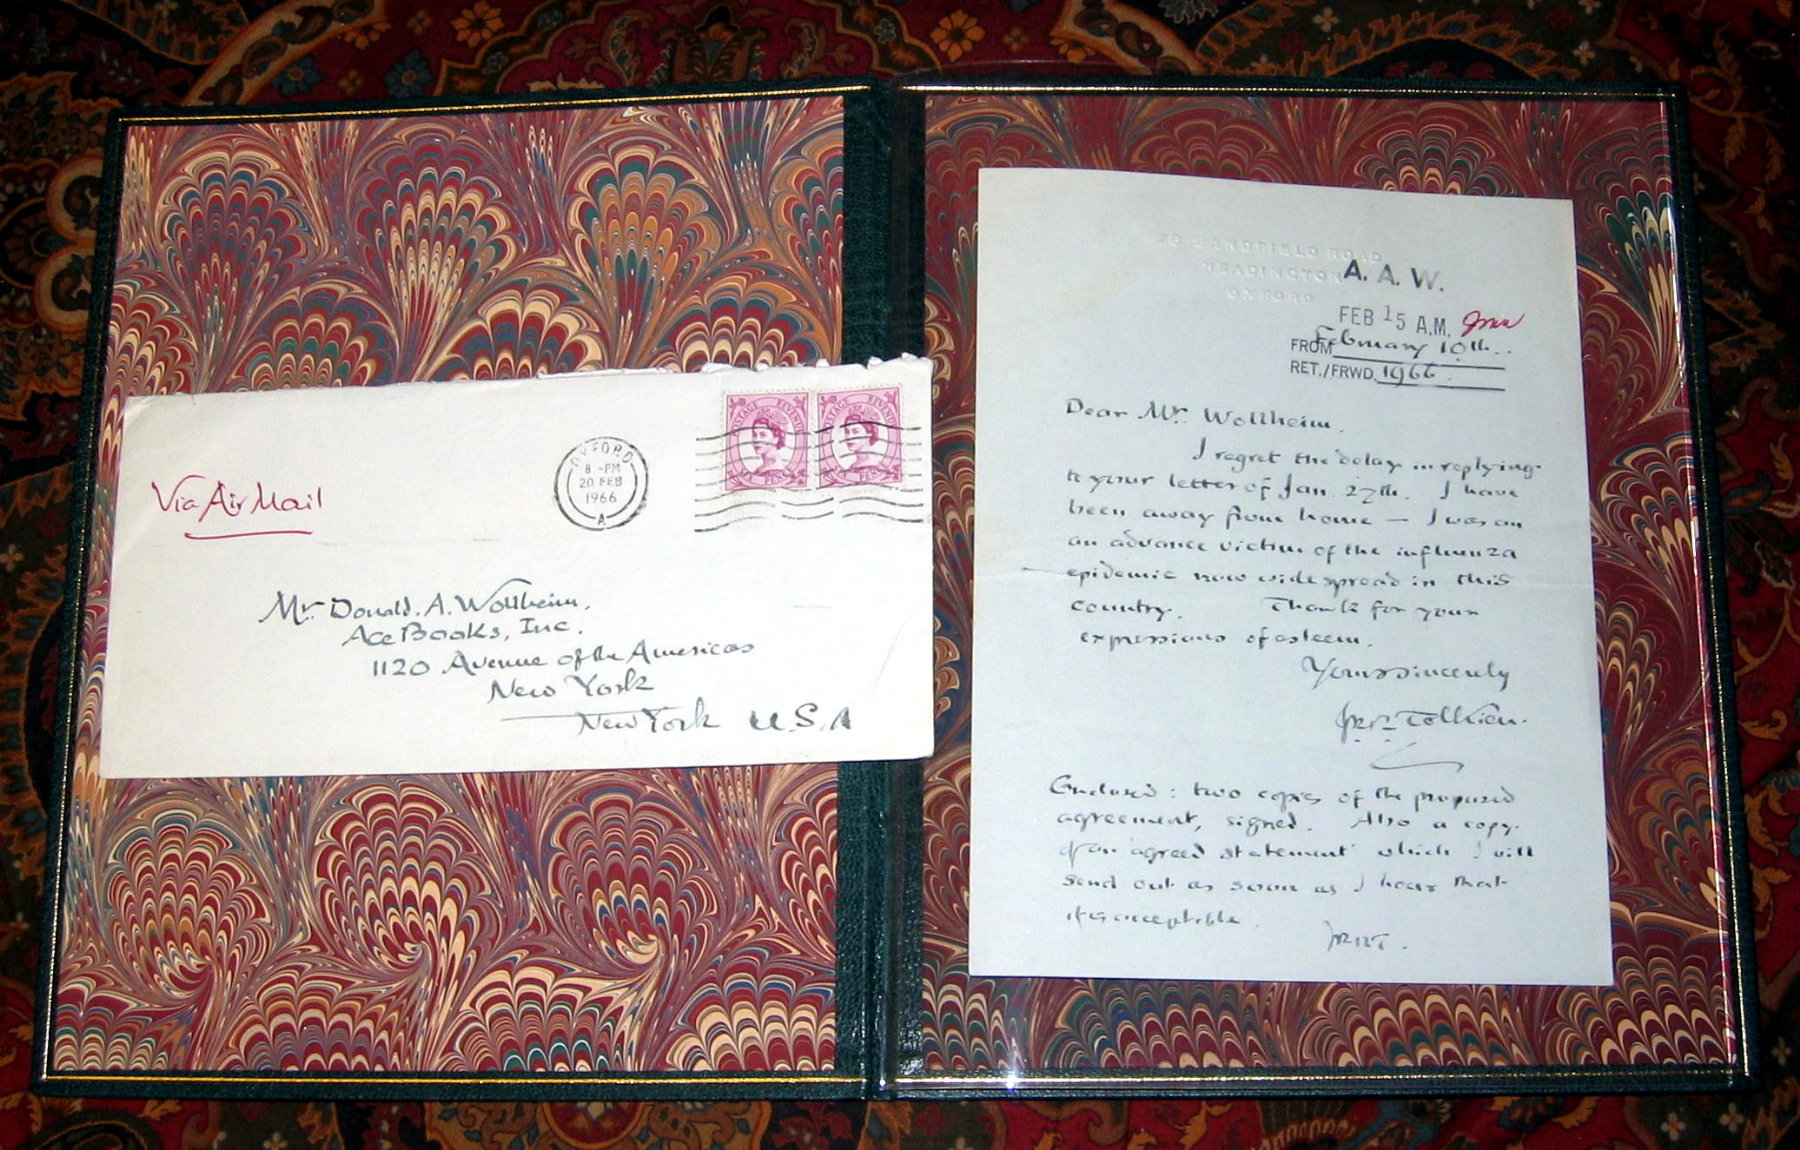 Via Air Mail
OXFORD
8 - PM
20 FEB
1966
A
POSTAGE REVENUE
POSTAGE REVENUE
Mr. Donald. A. Wollheim.
Ace Books, Inc.
1120 Avenue of the Americas
New York
New York U.S.A
76 SANDFIELD ROAD
HEADINGTON
OXFORD
A. A. W.
FEB 15 A.M.
FROM February 10th.
RET./FRWD. 1966.
Dear Mr. Wollheim.
I regret the delay in replying
to your letter of Jan. 27th. I have
been away from home — I was an
an advance victim of the influenza
epidemic now widespread in this
country. Thank for your
expressions of esteem.
Yours sincerely
JRR Tolkien.
Enclosed: two copies of the proposed
agreement, signed. Also a copy
of an 'agreed statement' which I will
send out as soon as I hear that
it is acceptable.
JRRT.